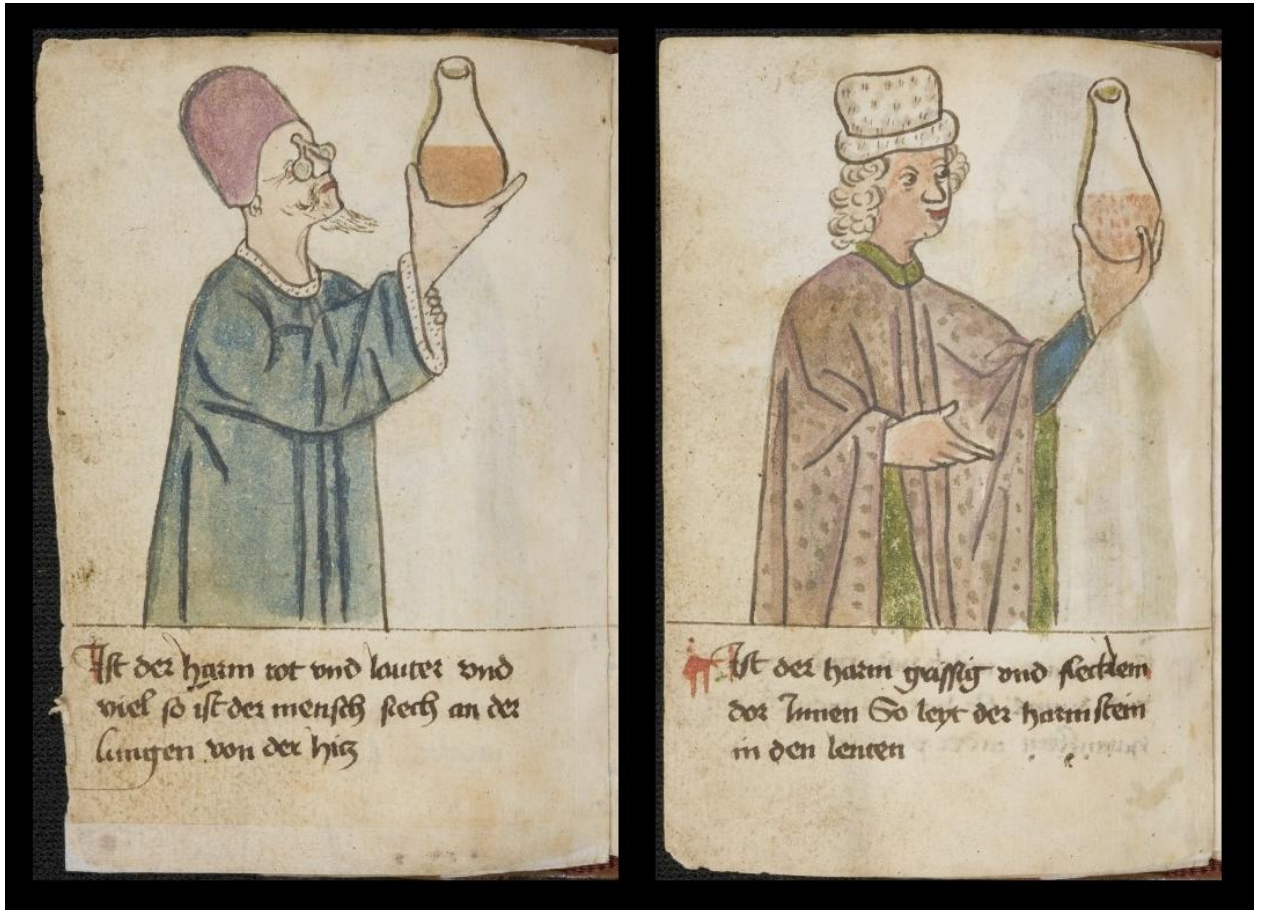 Ist der harm rot vnd lauter vnd
viel so ist der mensch siech an der
lungen von der hitz
Ist der harm grissig vnd flecklein
dor Innen So leyt der harmstein
in den lenten